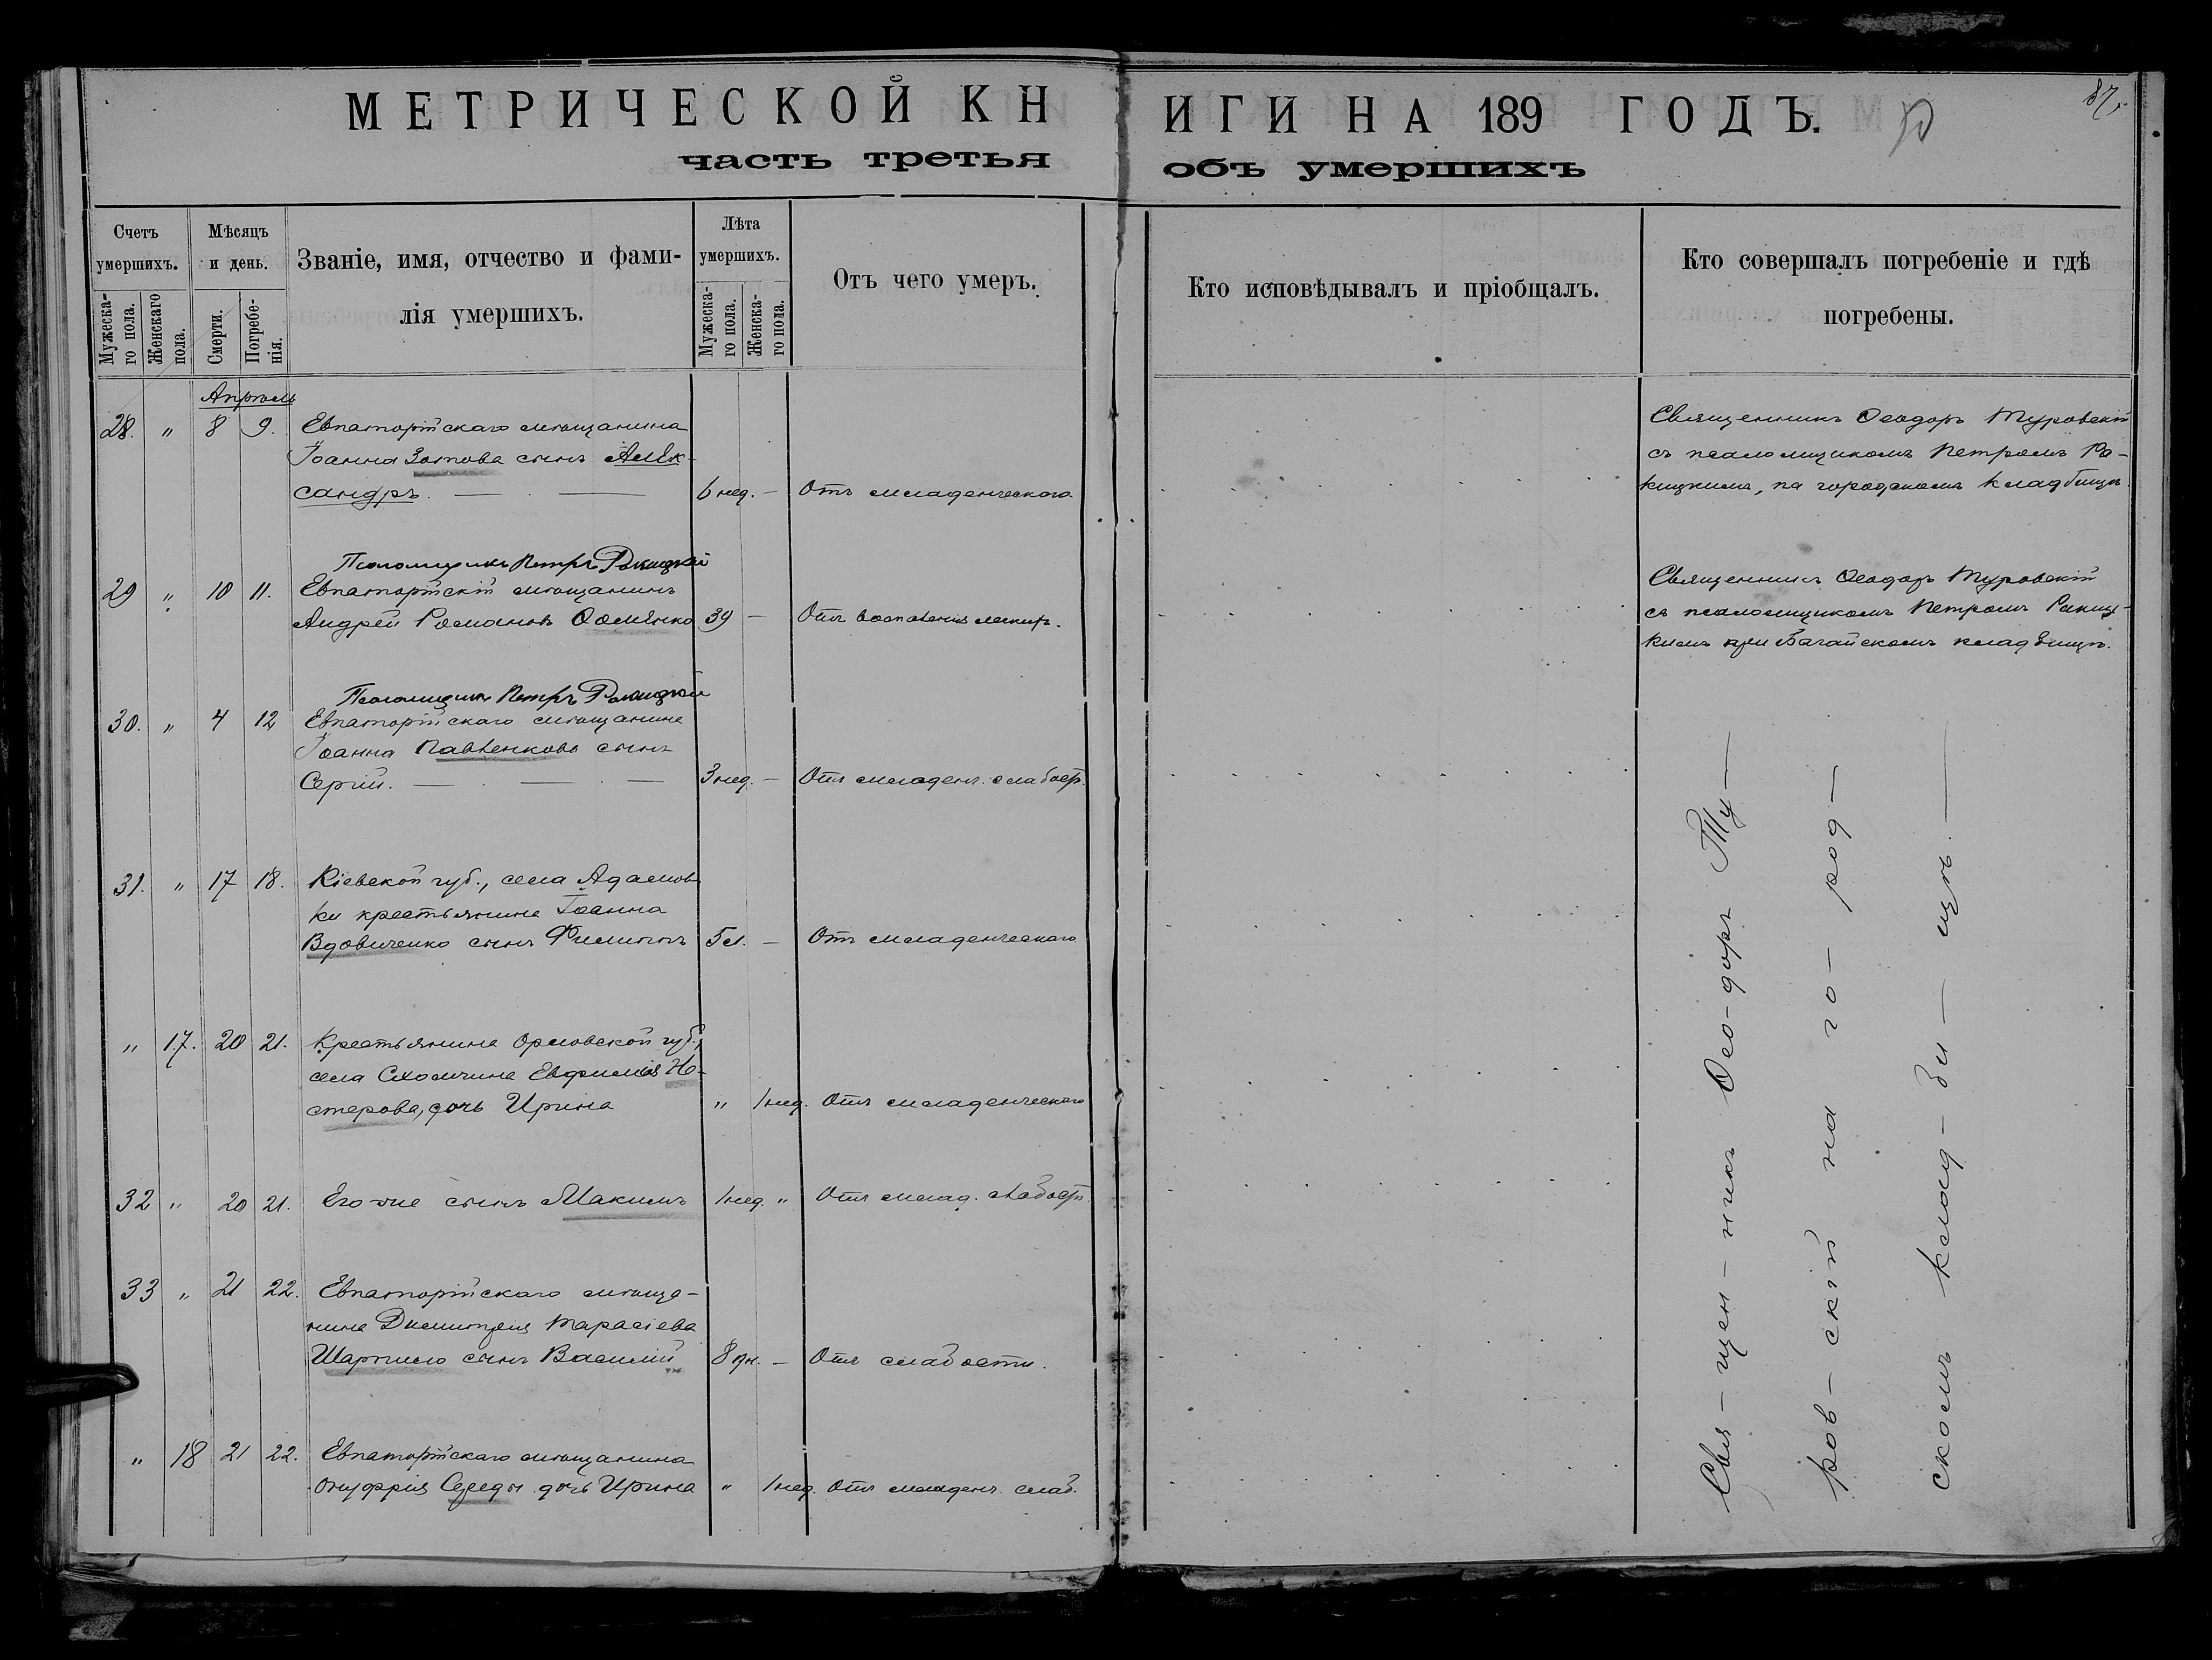 МЕТРИЧЕСКОЙ КНИГИ НА 189 ГОДЪ.
87
часть третья объ умершихъ
Счетъ умершихъ.
Мужеска-го пола.
Женскаго пола.
Мѣсяцъ и день.
Смерти.
Погребе-нія.
Званіе, имя, отчество и фами-
лія умершихъ.
Лѣта умершихъ.
Мужеска-го пола.
Женска-го пола.
Отъ чего умеръ.
Кто исповѣдывалъ и пріобщалъ.
Кто совершалъ погребеніе и гдѣ
погребены.
Апрѣль
28. " 8 9. Евпаторійскаго мѣщанина
Іоанна Зотова сынъ Алек-
сандръ. 6 нед. — Отъ младенческаго
Священникъ Ѳеодоръ Туровскій
съ псаломщикомъ Петромъ Ра-
кицкимъ, на городскомъ кладбищѣ
Псаломщикъ Петръ Ракицкій
29 " 10 11. Евпаторійскій мѣщанинъ
Андрей Романовъ 39 — Отъ воспаленія легкихъ.
Священникъ Ѳеодоръ Туровскій
съ псаломщикомъ Петромъ Ракиц-
кимъ при кладбищѣ.
Псаломщикъ Петръ Ракицкій
30. " 4 12 Евпаторійскаго мѣщанина
Іоанна Павленкова сынъ
Сергій. 3 нед. — Отъ младенч. слабост.
31. " 17 18. Кіевской губ., села Адамов-
ки крестьянина Іоанна
Вдовиченко сынъ Филиппъ 5 м. — Отъ младенческаго
" 17. 20 21. Крестьянина Орловской губ.,
села Евфимія Не-
стерова, дочь Ирина " 1 нед. Отъ младенческаго
32 " 20 21. Его-же сынъ Макимъ 1 нед. " Отъ млад. слабост.
33 " 21 22. Евпаторійскаго мѣща-
нина Димитрія Тарасіева
сынъ Василій 8 дн. — Отъ слабости.
" 18 21 22. Евпаторійскаго мѣщанина
Онуфрія Середы дочь Ирина " 1 нед. Отъ младенч. слаб.
Свя-щен-никъ Ѳео-доръ Ту-
ров-скій на го-род-
скомъ клад-би-щѣ.